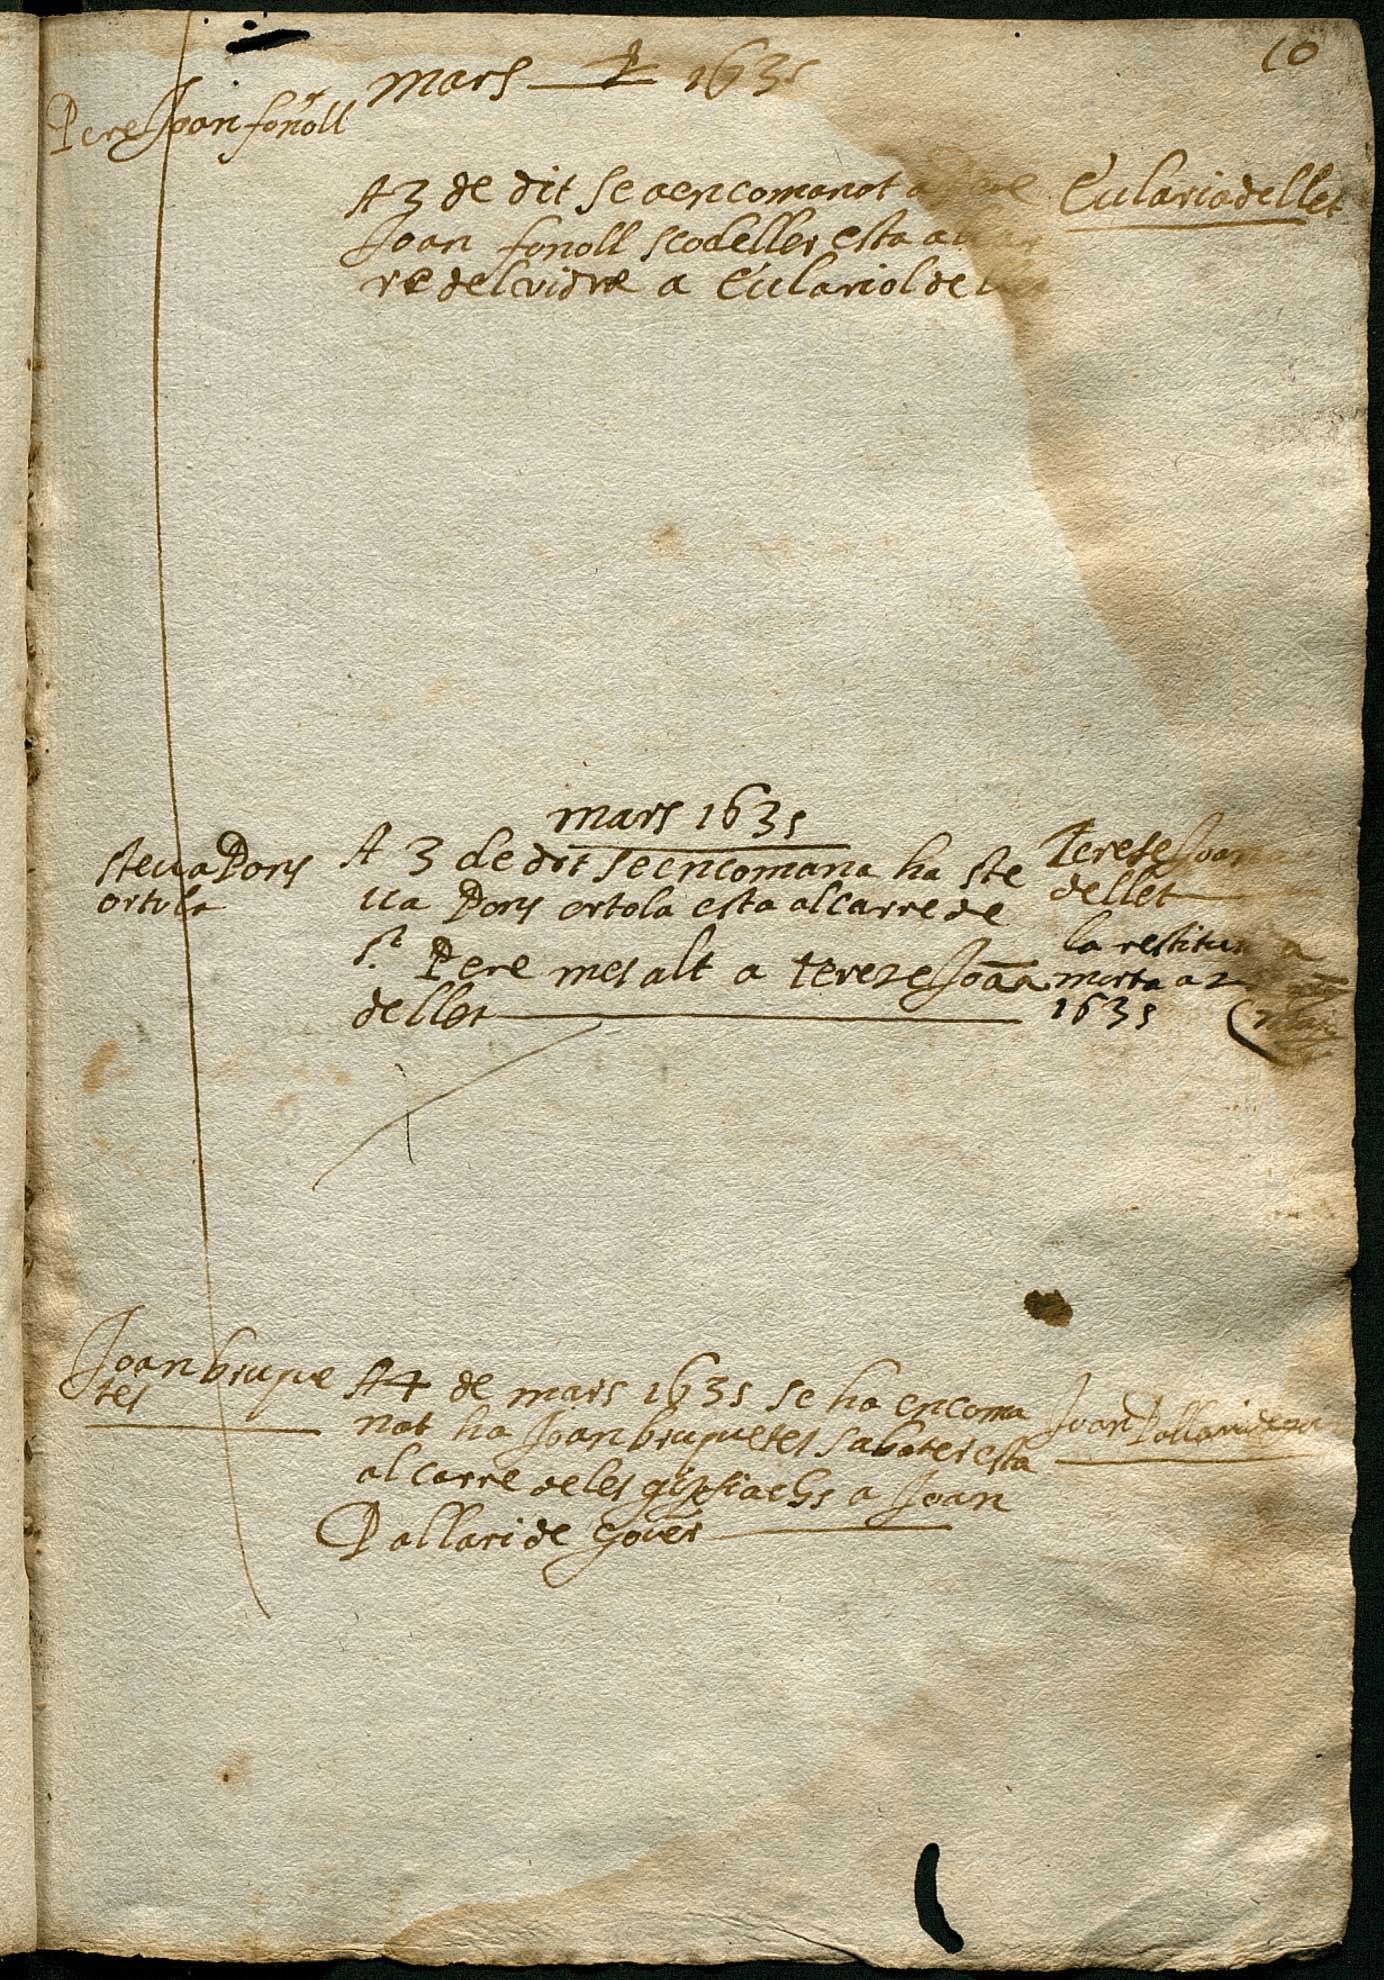 10
mars 1635
Pere Joan fonoll
A 3 de dit se a encomanat a Pere
Joan fonoll scodeller esta al
re del vidre a Eularia de
Eularia de llet
mars 1635
steua Pons
ortola
A 3 de dit se encomana ha ste
ua Pons ortola esta al carre de
st. Pere mes alt a tereze Joana
de llet
Tereze Joana
de llet
la restitui
morta a 2
1635
Joan brupue
tes
A 4 de mars 1635 se ha encoma
nat ha Joan brupuetes sabater esta
al carre de les a Joan
Pallari de gouer
Joan Pallari de